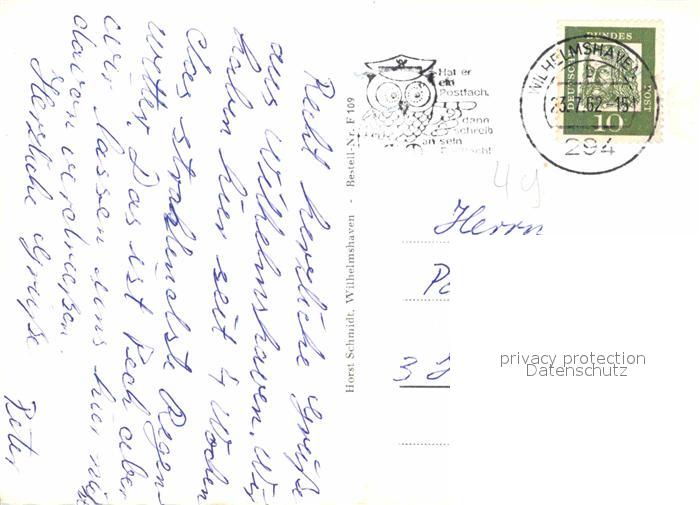 Recht herzliche Grüße
aus Wilhelmshaven. Wir
haben hier seit 4 Wochen
das strahlendste Regen-
wetter. Das ist Pech aber
wir lassen uns hier nicht
davon verdrießen.
Herzliche Grüße
Peter
Horst Schmidt, Wilhelmshaven - Bestell-Nr. F 109
Hat er
ein
Postfach,
dann
schreib
an sein
WILHELMSHAVEN
23.7.62-15
294
DEUTSCHE BUNDESPOST
10
49
Herrn
Po
3
privacy protection
Datenschutz